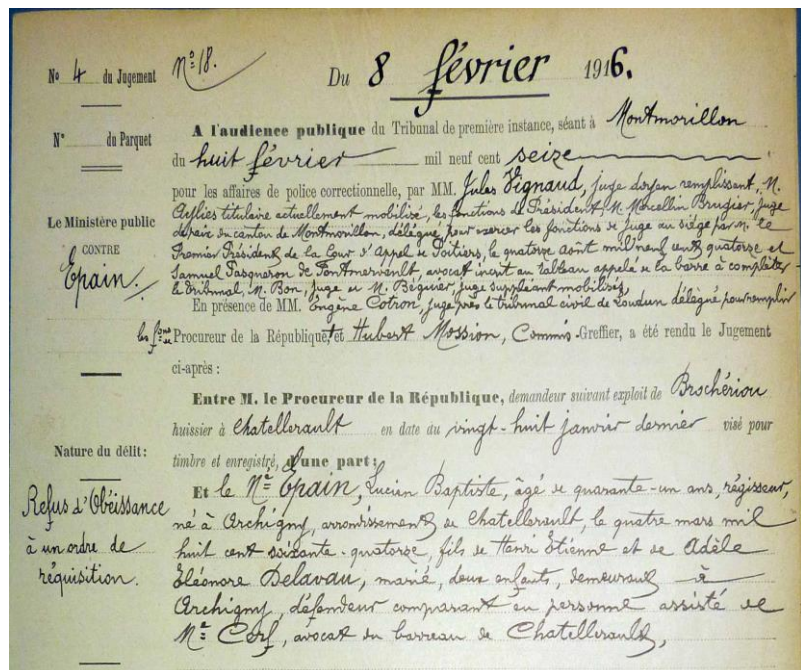 No 4 du Jugement
No 18.
Du 8 février 1916.
No du Parquet
A l'audience publique du Tribunal de première instance, séant à Montmorillon
du huit février mil neuf cent seize
pour les affaires de police correctionnelle, par MM. Jules Vignaud, juge doyen remplissant, M.
titulaire actuellement mobilisé, les fonctions de Président, M. Marcellin Brugier, juge
de paix du canton de Montmorillon, délégué pour exercer les fonctions de Juge au siège par M. le
Premier Président de la Cour d'Appel de Poitiers, le quatorze août mil neuf cent quatorze et
Samuel Pasqueron de Fontmervault, avocat inscrit au tableau appelé de la barre à compléter
le tribunal, M. Bon, juge et M. Béguier, juge suppléant mobilisés,
En présence de MM. Eugène Cotron, juge près le tribunal civil de Loudun délégué pour remplir
les fons de Procureur de la République, et Hubert Mossion, Commis-Greffier, a été rendu le Jugement
ci-après :
Le Ministère public
CONTRE
Epain.
Entre M. le Procureur de la République, demandeur suivant exploit de Brochériou
huissier à Chatellerault en date du vingt-huit janvier dernier visé pour
timbre et enregistré, d'une part ;
Nature du délit :
Refus d'Obéissance
à un ordre de
réquisition.
Et le Né Epain, Lucien Baptiste, âgé de quarante-un ans, régisseur,
né à Archigny, arrondissement de Chatellerault, le quatre mars mil
huit cent soixante-quatorze, fils de Henri Étienne et de Adèle
Eléonore Delavau, marié, deux enfants, demeurant à
Archigny, défendeur comparant en personne assisté de
Me Cerf, avocat du barreau de Chatellerault,